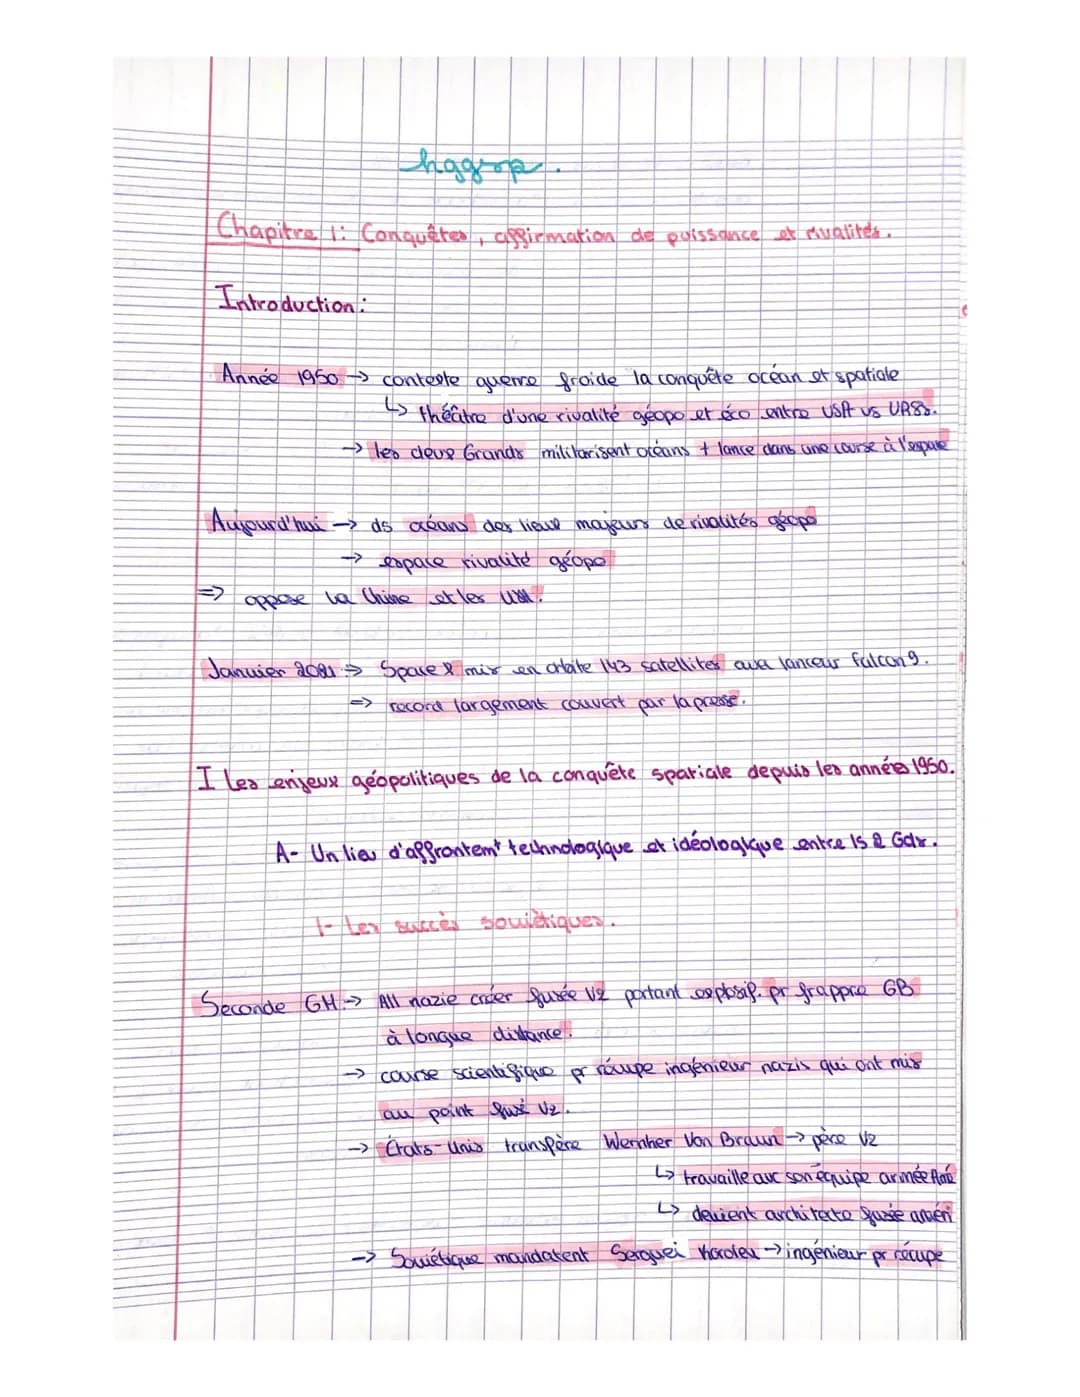 hggsp.
Chapitre 1: Conquêtes, affirmation de puissance et rivalités.
Introduction:
Année 1950 → contexte guerre froide la conquête océan et spatiale
↳ théâtre d'une rivalité géopo et éco entre USA vs URSS.
→ les deux Grands militarisent océans + lance dans une course à l'espace
Aujourd'hui → ds océans des lieux majeurs de rivalités géopo
→ espace rivalité géopo
=> oppose la Chine et les USA.
Janvier 2021 => Space X mis en orbite 143 satellites avec lanceur Falcon 9.
=> record largement couvert par la presse.
I Les enjeux géopolitiques de la conquête spatiale depuis les années 1950.
A- Un lieu d'affrontemt technologique et idéologique entre ls 2 Gds.
1- Les succès soviétiques.
Seconde GM → All nazie créer fusée V2 portant explosif. pr frappre GB
à longue distance.
→ course scientifique pr récupe ingénieur nazis qui ont mis
au point fusé V2.
→ États-Unis transfère Wernher Von Braun → père V2
↳ travaille avc son équipe armée Amé
↳ devient architecte fusée améri
→ Soviétique mandatent Sergueï Korolev → ingénieur pr récupe